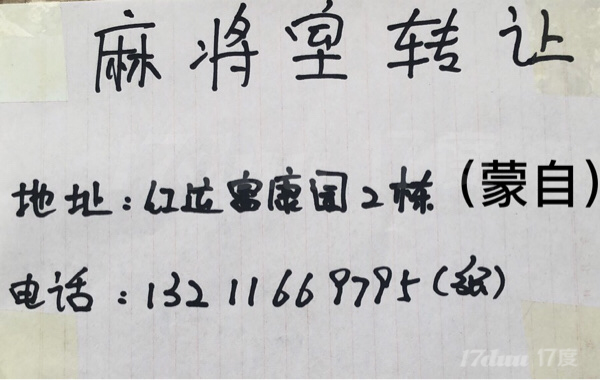 麻将室转让
地址:红运富康园2栋(蒙自)
电话:13211669795(纸)
17duu 17度